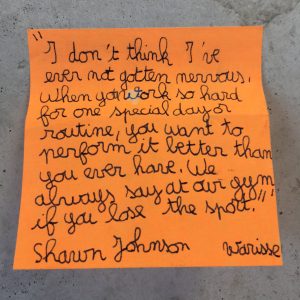 "
I don't think I've
ever not gotten nervous.
When you work so hard
for one special day or
routine, you want to
perform it better than
you ever have. We
always say at our gym
if you lose the spoil. "
Shawn Johnson Warisse